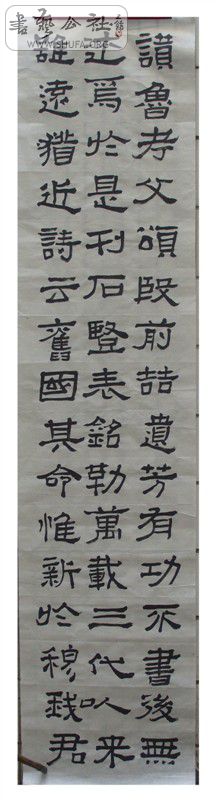 讃魯考父頌殷前喆遺芳有功不書後無
述焉於是刊石竪表銘勒萬載三代以来
雖遠猶近詩云舊國其命惟新於穆我君
書藝公社
WWW.SHUFA.ORG